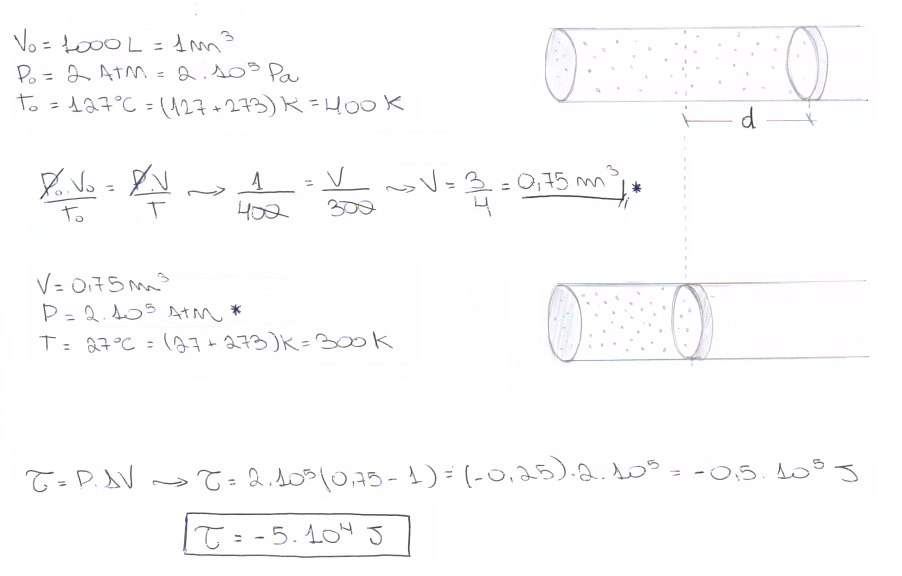 V₀ = 1000 L = 1 m³
P₀ = 2 Atm = 2.10⁵ Pa
T₀ = 127°C = (127+273)K = 400 K
d
P₀.V₀/T₀ = P.V/T → 1/400 = V/300 → V = 3/4 = 0,75 m³ *
V = 0,75 m³
P = 2.10⁵ Atm *
T = 27°C = (27+273)K = 300 K
τ = P.ΔV → τ = 2.10⁵(0,75 - 1) = (-0,25).2.10⁵ = -0,5.10⁵ J
τ = -5.10⁴ J